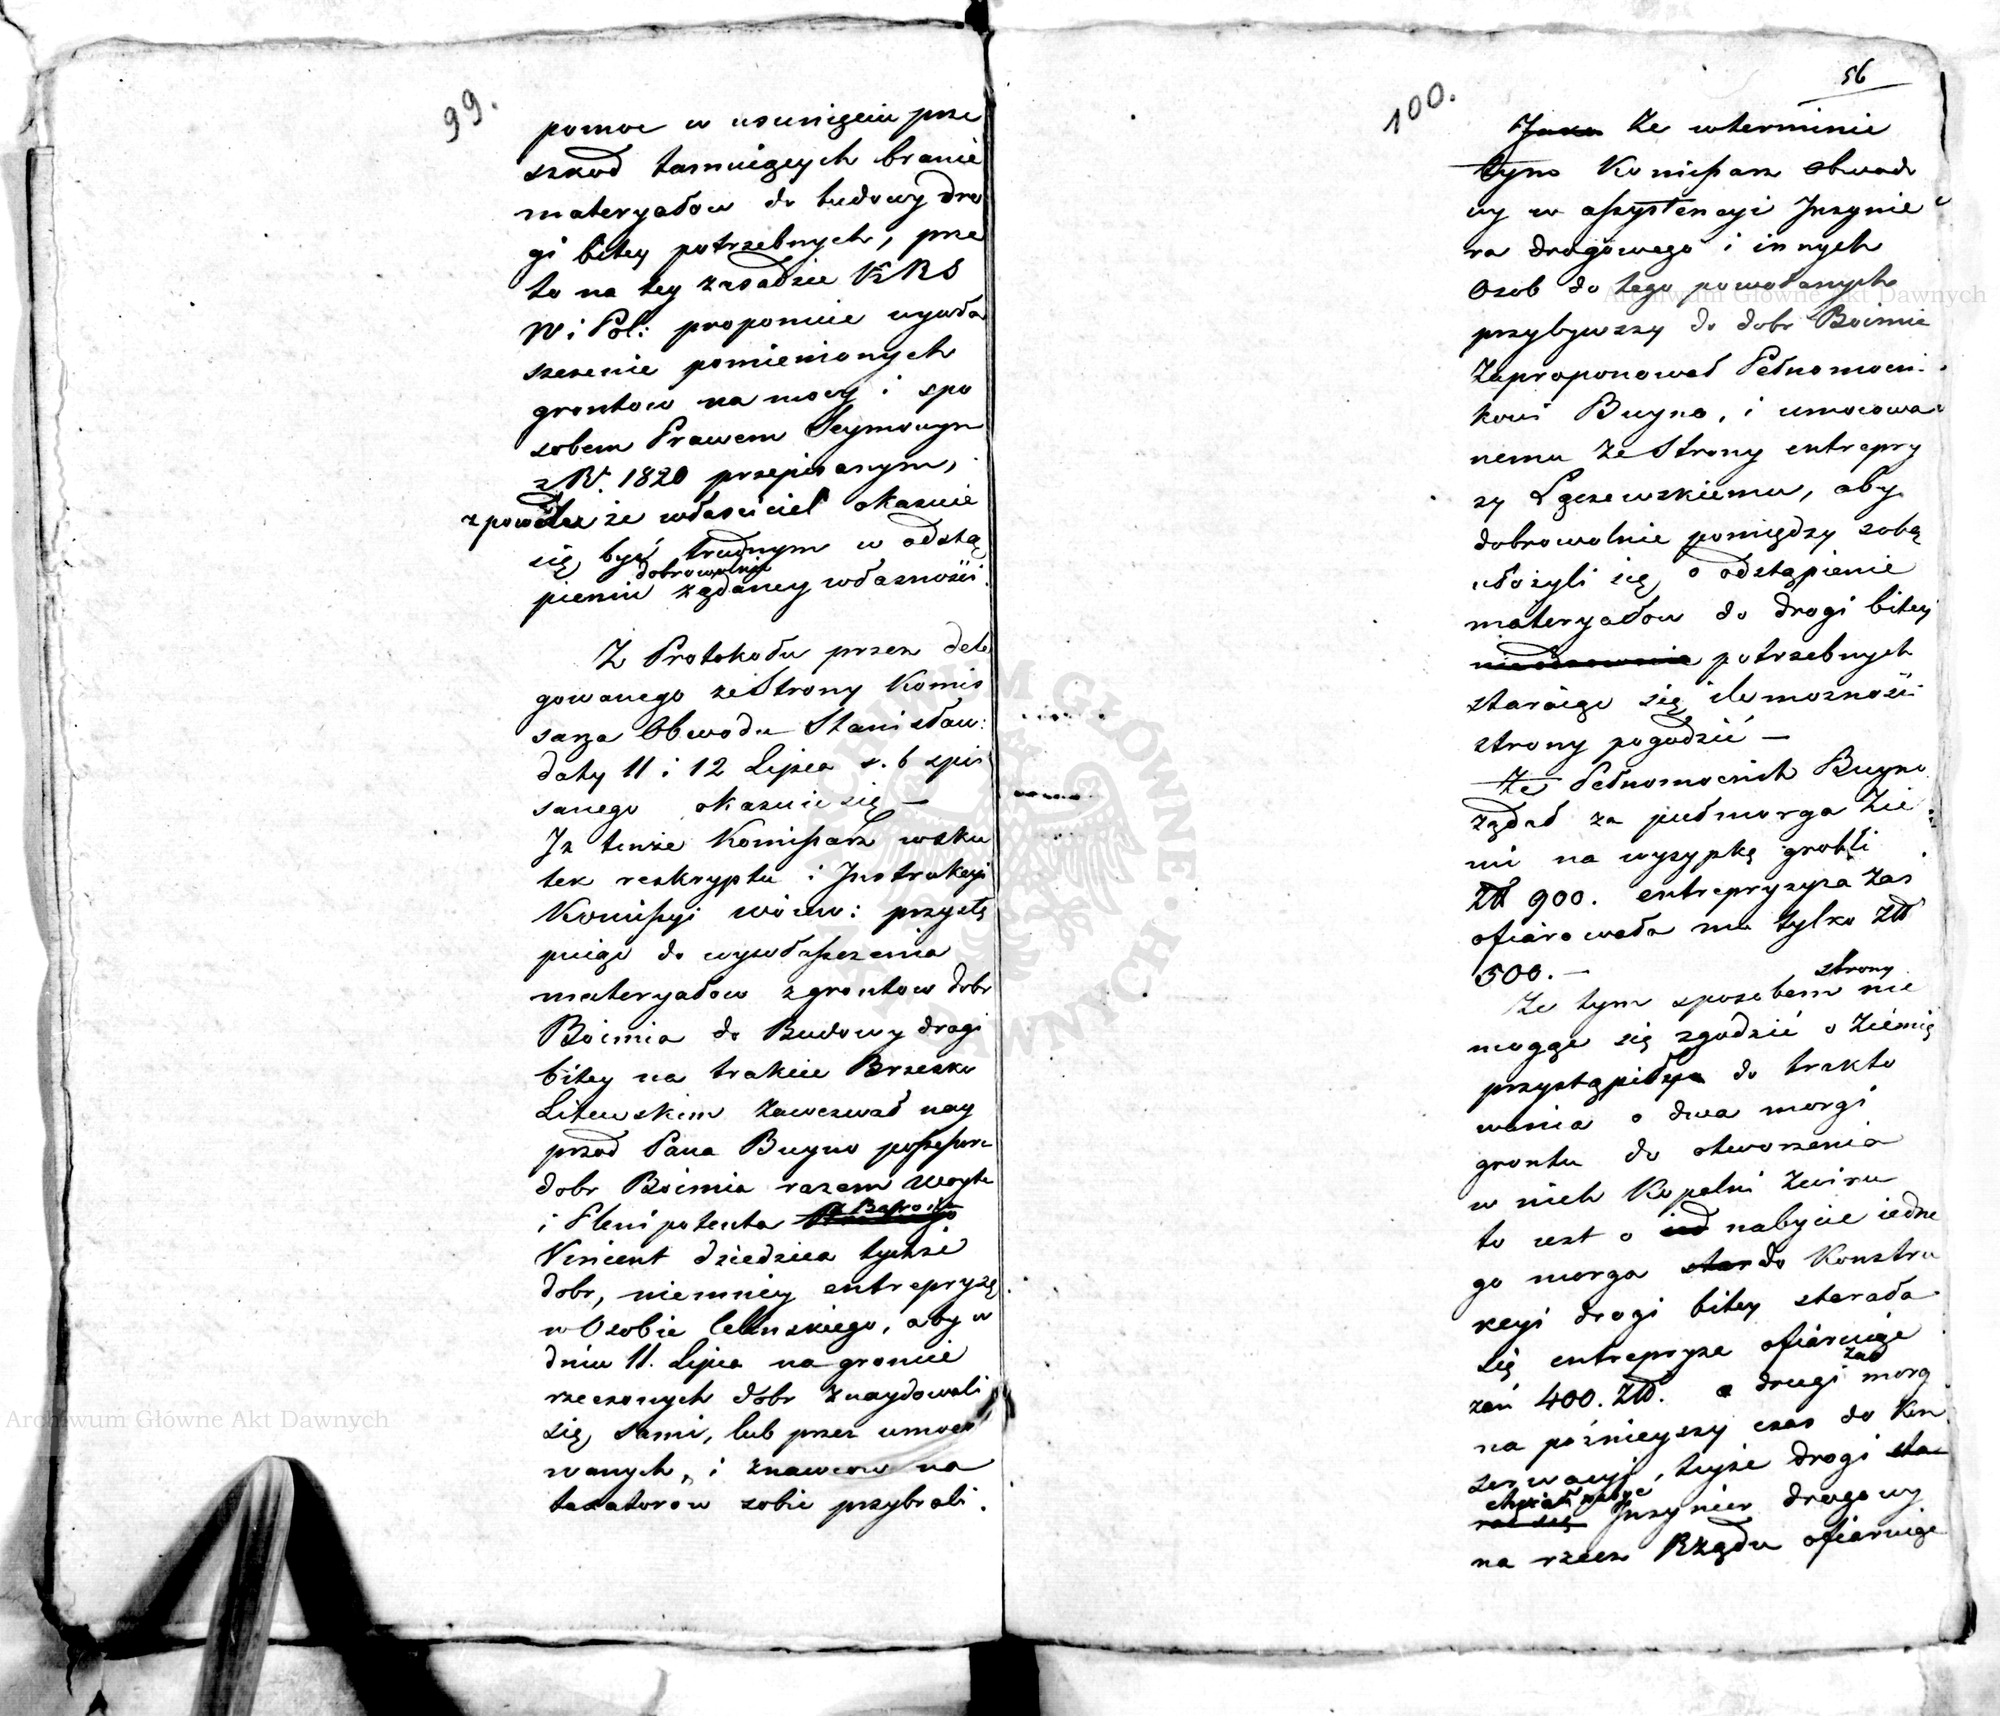 99.
pomoc w usunięciu prze
szkod tamuiących branie
materyałow do budowy dro
gi bitey potrzebnych, prze
to na tey zasadzie KRS
W i Pol: proponuie wywła
szczenie pomienionych
grontow na mocy i spo
sobem Prawem Seymowym
z R. 1820 przepisanym,
z powodu że własciciel okazuie
się być trudnym w odstą
dobrowolnie
pieniu żądaney własności.
Z Protokołu przez dele
gowanego ze Strony Komis
sarza Obwodu Stanisław:
daty 11 i 12 Lipca r. b spi
sanego okazuie się —
Iż tenże Komissarz wsku
tek reskryptu i Instrukcyi
Komissyi wóiew: przystę
puiąc do wywłaszczenia
materyałow z grontow dobr
Boimia do Budowy drogi
bitey na trakcie Brzesko
Litewskim zawezwał nay
przod Pana Buyno possessora
dobr Boimia razem
i Plenipotenta
Vincent dziedzica tychże
dobr, niemniey entrepryzę
w Osobie Celinskiego, aby w
dniu 11. Lipca na groncie
rzeczonych dobr znaydowali
się sami, lub przez umoco
wanych, i znawcow na
taxatorów sobie przybrali.
56
100.
Jako że w terminie
tym Komissarz obwodo
wy w assystencyi Inzynie
ra drogowego i innych
Osob do tego powołanych
przybywszy do dobr Boimie
Zaproponował Pełnomocni
kowi Buyno, i umocowa
nemu ze Strony entrepry
zy Łączewskiemu, aby
dobrowolnie pomiędzy sobą
ułożyli się o odstąpienie
materyałow do drogi bitey
potrzebnych
staraiąc się ile możności
strony pogodzić —
Że Pełnomocnik Buyno
żądał za pułmorga Zie
mi na wysypkę grobli
Zł 900. entrepryzya zaś
ofiarowała mu tylko Zł
500. —
strony
Że tym sposobem nie
mogąc się zgodzić o Ziemię
przystąpiły do trakto
wania o dwa morgi
grontu do otworzenia
w nich Kopalni Zwiru
to iest o nabycie iedne
go morga do Konstru
kcyi drogi bitey starała
się entrepryza ofiaruiąc
zań 400. Zł. a drugi zaś morg
na poźnieyszy czas do Kon
serwacyi, teyże drogi sta
chciał nabyć
rał się Inzynier drogowy
na rzecz Rządu ofiaruiąc
Archiwum Główne Akt Dawnych
Archiwum Główne Akt Dawnych
ARCHIWUM GŁÓWNE AKT DAWNYCH